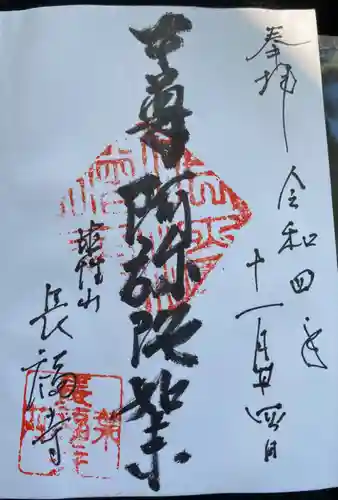 奉拝
令和四年
十一月廿四日
中尊阿弥陀如来
長福寺